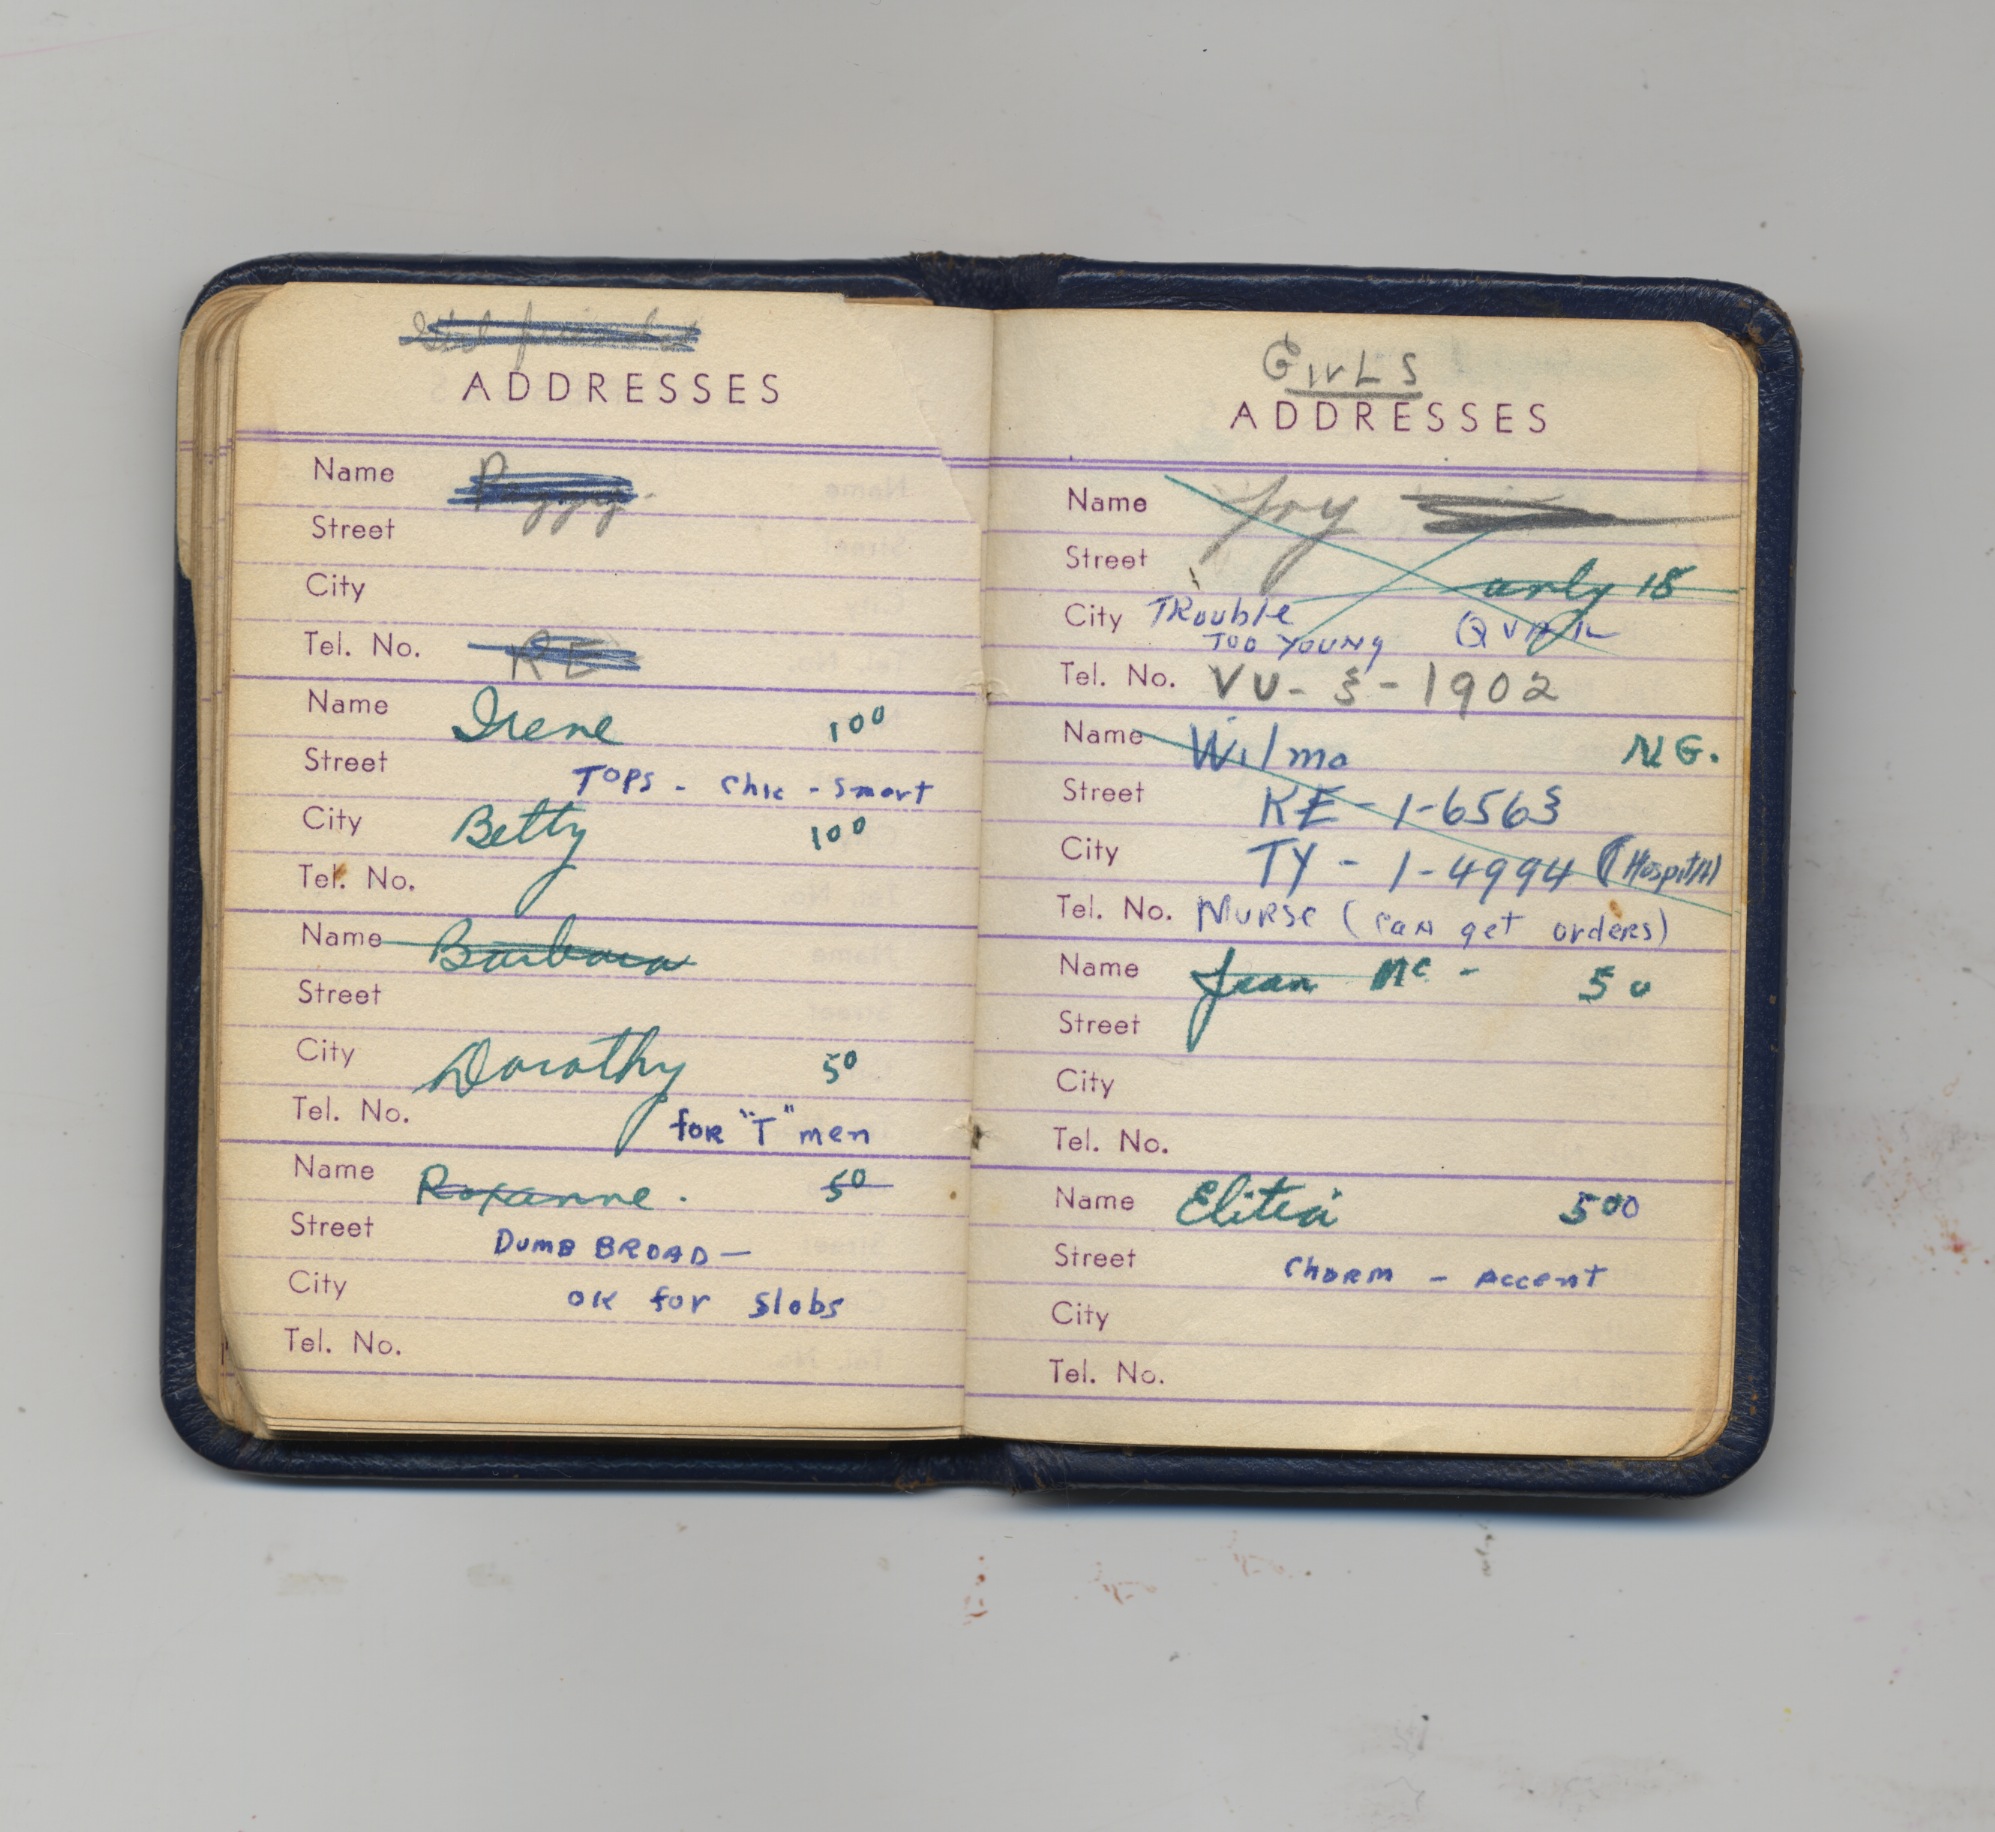 Girl friends
ADDRESSES
Name Peggy
Street
City
Tel. No. RE
Name Irene 100
Street TOPS - Chic - Smart
City Betty 100
Tel. No.
Name Barbara
Street
City Dorothy 50
Tel. No. for "T" men
Name Roxanne. 50
Street DUMB BROAD -
City OK for Slobs
Tel. No.
GirLS
ADDRESSES
Name Joy
Street only 18
City TRouble
TOO YOUNG
Tel. No. VU-3-1902
Name Wilma N.G.
Street KE-1-6563
City TY-1-4994 (Hospital)
Tel. No. NURSE (can get orders)
Name Jean Mc - 50
Street
City
Tel. No.
Name Elitia 500
Street Charm - Accent
City
Tel. No.